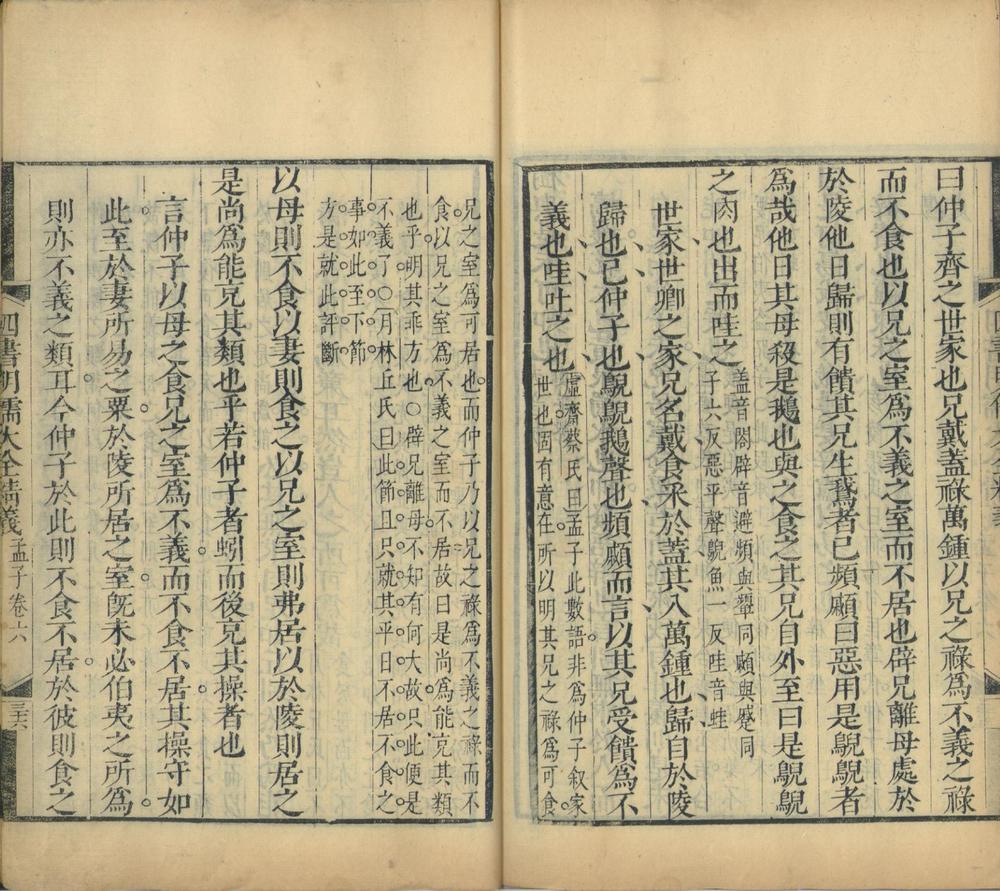 曰仲子齊之世家也兄戴蓋祿萬鍾以兄之祿爲不義之祿
而不食也以兄之室爲不義之室而不居也辟兄離母處於
於陵他日歸則有饋其兄生鵞者己頻顣曰惡用是鶃鶃者
爲哉他日其母殺是鵝也與之食之其兄自外至曰是鶃鶃
之肉也出而哇之
蓋音閤辟音避頻與顰同顣與蹙同
子六反惡平聲鶃魚一反哇音蛙
世家世卿之家兄名戴食采於蓋其入萬鍾也歸自於陵
歸也己仲子也鶃鶃鵝聲也頻顣而言以其兄受饋爲不
義也哇吐之也
虛齋蔡氏曰孟子此數語非爲仲子叙家
世也固有意在所以明其兄之祿爲可食
兄之室爲可居也而仲子乃以兄之祿爲不義之祿而不
食以兄之室爲不義之室而不居故曰是尚爲能充其類
也乎明其乖方也○辟兄離母不知有何大故只此便是
不義了○月林丘氏曰此節且只就其平日不居不食之
事如此至下節
方是就此評斷
以母則不食以妻則食之以兄之室則弗居以於陵則居之
是尚爲能充其類也乎若仲子者蚓而後充其操者也
言仲子以母之食兄之室爲不義而不食不居其操守如
此至於妻所易之粟於陵所居之室既未必伯夷之所爲
則亦不義之類耳今仲子於此則不食不居於彼則食之
四書明儒大全精義 孟子卷六 三六